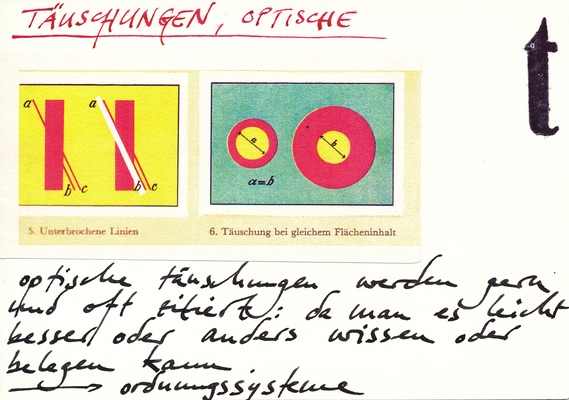 TÄUSCHUNGEN, OPTISCHE
t
a
b
c
a
b
c
a
b
a=b
5. Unterbrochene Linien
6. Täuschung bei gleichem Flächeninhalt
optische täuschungen werden gern
und oft zitiert: da man es leicht
besser oder anders wissen oder
belegen kann
→ ordnungssysteme